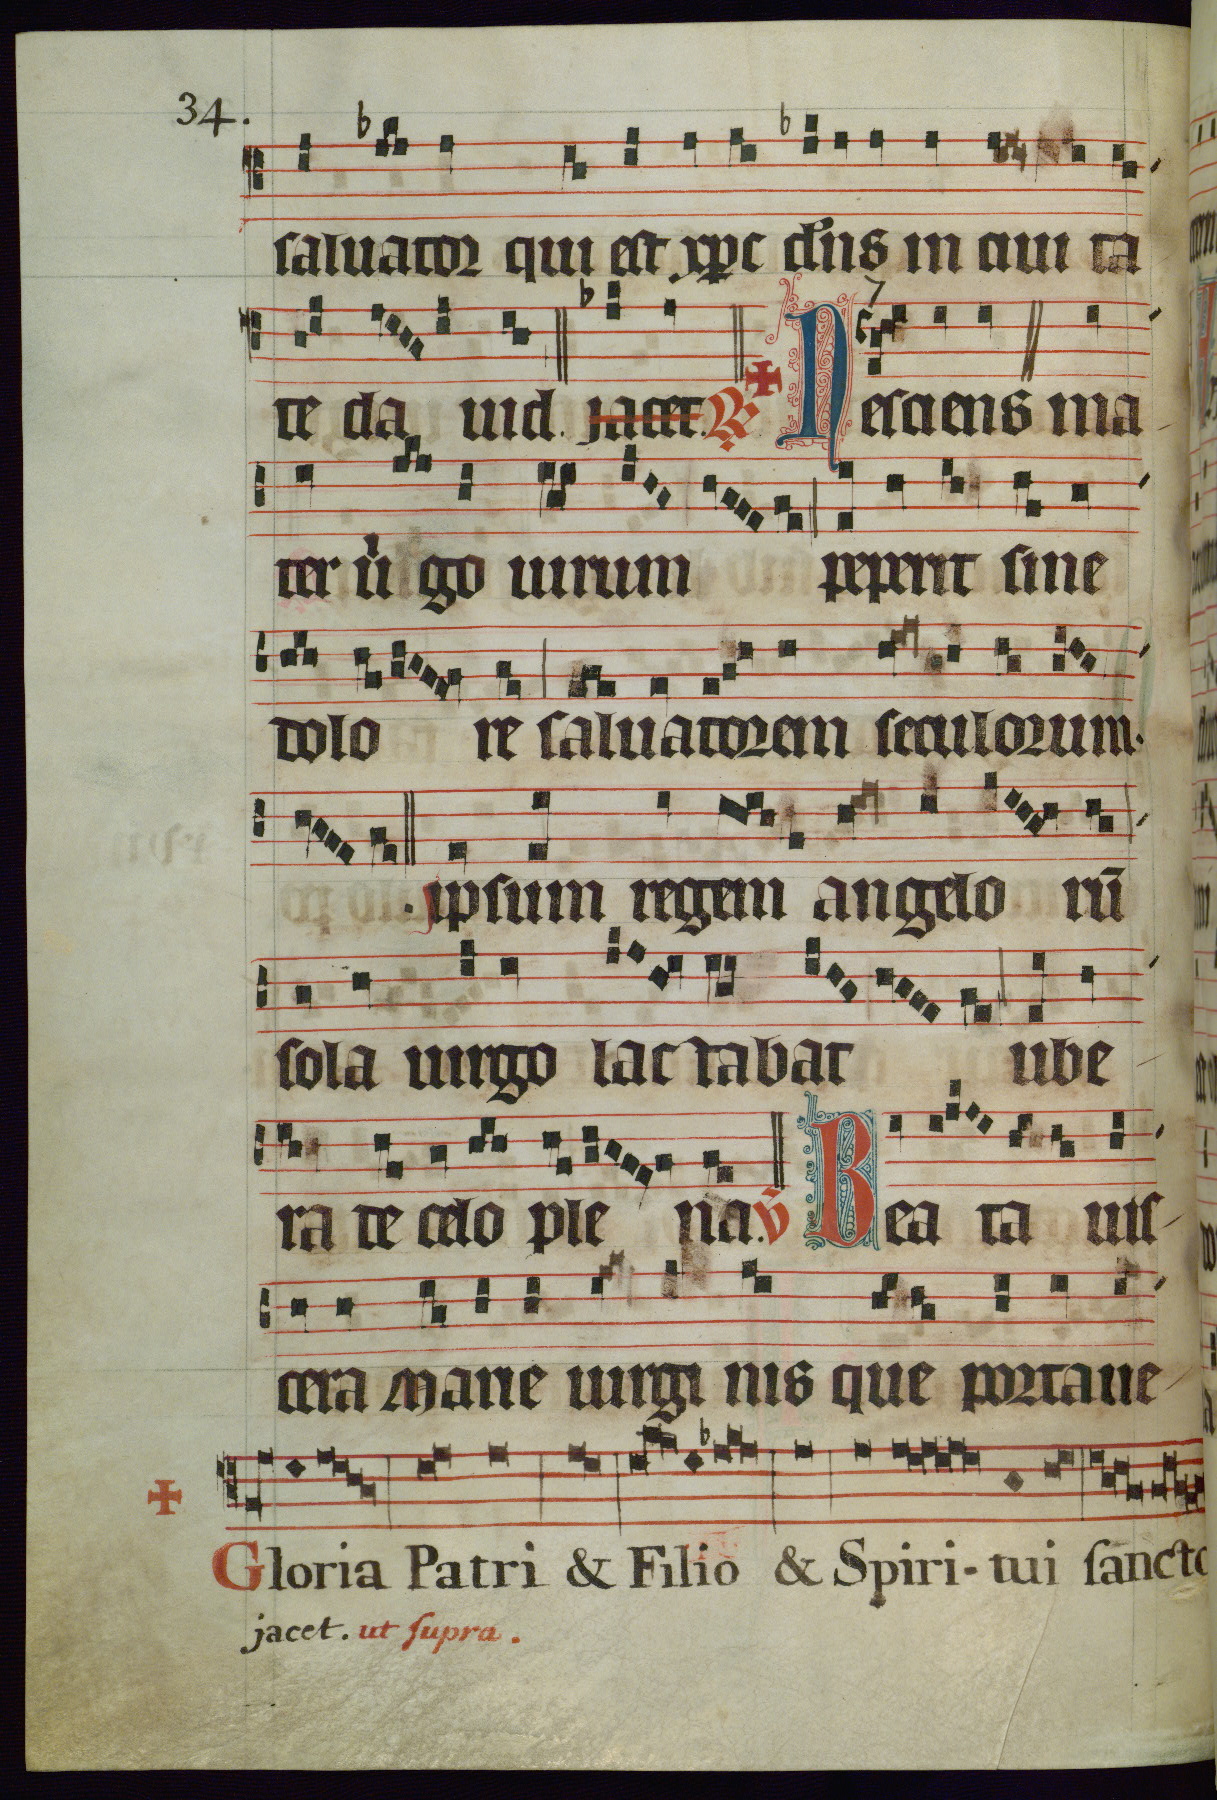 34.
saluator qui est xpc dn̄s in ciui ta
te da uid. jacet. R̸ Nesciens ma
ter uͥgo uirum peperit sine
dolo re saluatorem seculorum.
ipsum regem angelo rū
sola uirgo lac tabat ube
ra te celo ple na. v̄ Bea ta uis
cera marie uirgi nis que portaue
Gloria Patri & Filio & Spiri-tui ſancto
jacet. ut ſupra.